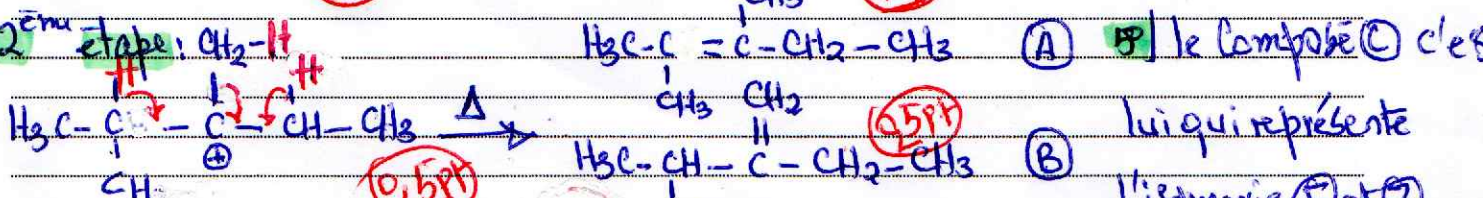 2ème étape: CH₂-H
H₃C-C-C-CH-CH₃ Δ
H H
⊕
CH
0,5pt
CH₃
H₃C-C=C-CH₂-CH₃ Ⓐ
CH₃ CH₂
H₃C-CH-C-CH₂-CH₃ Ⓑ
0,5pt
le Composé Ⓒ c'es
lui qui représente